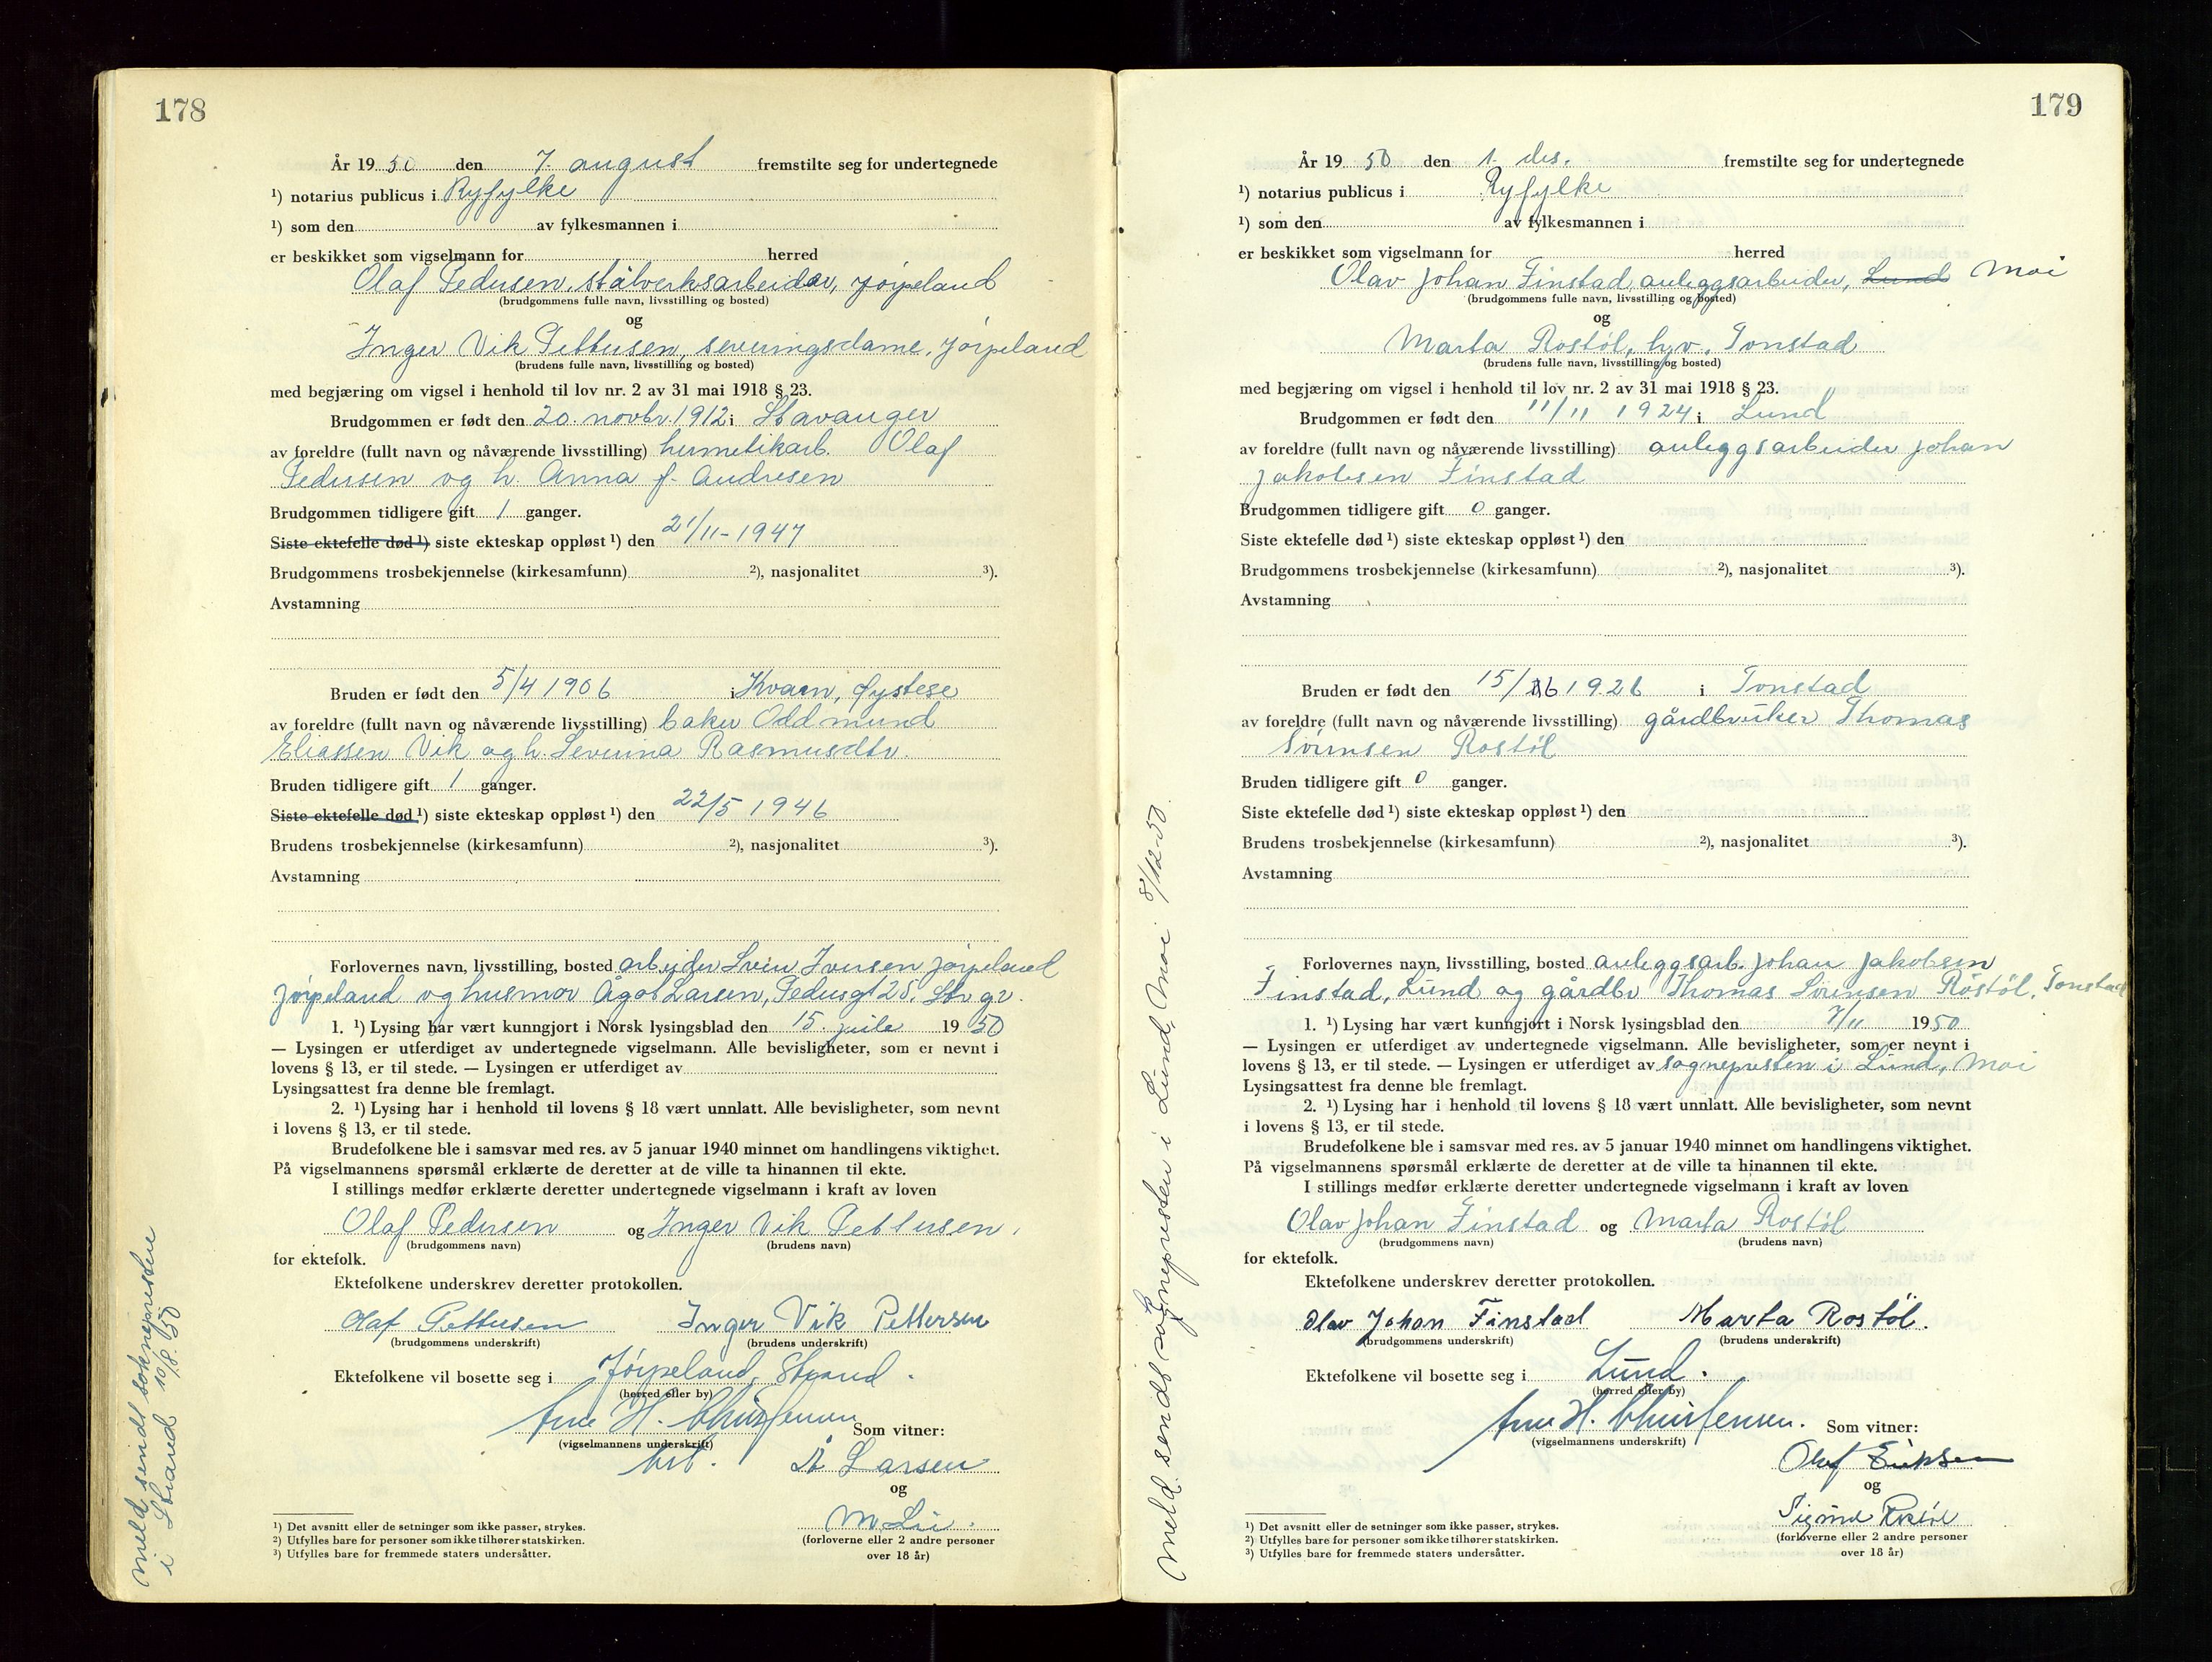 178
År 1950 den 7. august fremstilte seg for undertegnede
¹) notarius publicus i Ryfylke
¹) som den av fylkesmannen i
er beskikket som vigselmann for herred
Olaf Pedersen, stålverksarbeider, Jørpeland
(brudgommens fulle navn, livsstilling og bosted)
og
Inger Vik Pettersen, serveringsdame, Jørpeland
(brudens fulle navn, livsstilling og bosted)
med begjæring om vigsel i henhold til lov nr. 2 av 31 mai 1918 § 23.
Brudgommen er født den 20. novbr. 1912 i Stavanger
av foreldre (fullt navn og nåværende livsstilling) hermetikarb. Olaf
Pedersen og h. Anna f. Andresen
Brudgommen tidligere gift 1 ganger.
Siste ektefelle død ¹) siste ekteskap oppløst ¹) den 21/11-1947
Brudgommens trosbekjennelse (kirkesamfunn) ²), nasjonalitet ³).
Avstamning
Bruden er født den 5/4 1906 i Kvam, Øystese
av foreldre (fullt navn og nåværende livsstilling) baker Oddmund
Eliassen Vik og h. Severina Rasmusdtr.
Bruden tidligere gift 1 ganger.
Siste ektefelle død ¹) siste ekteskap oppløst ¹) den 22/5 1946
Brudens trosbekjennelse (kirkesamfunn) ²), nasjonalitet ³).
Avstamning
Forlovernes navn, livsstilling, bosted arbeider Svein Iversen Jørpeland
Jørpeland og husmor Ågot Larsen, Pedersgt 25, Stvgr.
1. ¹) Lysing har vært kunngjort i Norsk lysingsblad den 15. juli 1950
— Lysingen er utferdiget av undertegnede vigselmann. Alle bevisligheter, som er nevnt i
lovens § 13, er til stede. — Lysingen er utferdiget av
Lysingsattest fra denne ble fremlagt.
2. ¹) Lysing har i henhold til lovens § 18 vært unnlatt. Alle bevisligheter, som nevnt
i lovens § 13, er til stede.
Brudefolkene ble i samsvar med res. av 5 januar 1940 minnet om handlingens viktighet.
På vigselmannens spørsmål erklærte de deretter at de ville ta hinannen til ekte.
I stillings medfør erklærte deretter undertegnede vigselmann i kraft av loven
Olaf Pedersen og Inger Vik Pettersen,
(brudgommens navn) (brudens navn)
for ektefolk.
Ektefolkene underskrev deretter protokollen.
Olaf Pettersen Inger Vik Pettersen
(brudgommens underskrift) (brudens underskrift)
Ektefolkene vil bosette seg i Jørpeland, Strand.
(herred eller by)
Arne H. Christensen
Som vitner:
(vigselmannens underskrift)
Å Larsen
og
M. Lie.
(forloverne eller 2 andre personer
over 18 år)
¹) Det avsnitt eller de setninger som ikke passer, strykes.
²) Utfylles bare for personer som ikke tilhører statskirken.
³) Utfylles bare for fremmede staters undersåtter.
meld. sendt sokneprester
i Strand 10/8.50
179
År 1950 den 1. des. fremstilte seg for undertegnede
¹) notarius publicus i Ryfylke
¹) som den av fylkesmannen i
er beskikket som vigselmann for herred
Olav Johan Finstad, anleggsarbeider, Lund Moi
(brudgommens fulle navn, livsstilling og bosted)
og
Marta Rostøl, hv., Tonstad
(brudens fulle navn, livsstilling og bosted)
med begjæring om vigsel i henhold til lov nr. 2 av 31 mai 1918 § 23.
Brudgommen er født den 11/11 1924 i Lund
av foreldre (fullt navn og nåværende livsstilling) anleggsarbeider Johan
Jakobsen Finstad
Brudgommen tidligere gift 0 ganger.
Siste ektefelle død ¹) siste ekteskap oppløst ¹) den
Brudgommens trosbekjennelse (kirkesamfunn) ²), nasjonalitet ³).
Avstamning
Bruden er født den 15/6 1926 i Tonstad
av foreldre (fullt navn og nåværende livsstilling) gårdbruker Thomas
Sørensen Rostøl
Bruden tidligere gift 0 ganger.
Siste ektefelle død ¹) siste ekteskap oppløst ¹) den
Brudens trosbekjennelse (kirkesamfunn) ²), nasjonalitet ³).
Avstamning
Forlovernes navn, livsstilling, bosted anleggsarb. Johan Jakobsen
Finstad, Lund og gårdbr Thomas Sørensen Rostøl, Tonstad
1. ¹) Lysing har vært kunngjort i Norsk lysingsblad den 7/11 1950
— Lysingen er utferdiget av undertegnede vigselmann. Alle bevisligheter, som er nevnt i
lovens § 13, er til stede. — Lysingen er utferdiget av sognepresten i Lund, Moi
Lysingsattest fra denne ble fremlagt.
2. ¹) Lysing har i henhold til lovens § 18 vært unnlatt. Alle bevisligheter, som nevnt
i lovens § 13, er til stede.
Brudefolkene ble i samsvar med res. av 5 januar 1940 minnet om handlingens viktighet.
På vigselmannens spørsmål erklærte de deretter at de ville ta hinannen til ekte.
I stillings medfør erklærte deretter undertegnede vigselmann i kraft av loven
Olav Johan Finstad og Marta Rostøl
(brudgommens navn) (brudens navn)
for ektefolk.
Ektefolkene underskrev deretter protokollen.
Olav Johan Finstad Marta Rostøl.
(brudgommens underskrift) (brudens underskrift)
Ektefolkene vil bosette seg i Lund.
(herred eller by)
Arne H. Christensen. Som vitner:
(vigselmannens underskrift)
Olaf Eriksen
og
Sigmund Rostøl
(forloverne eller 2 andre personer
over 18 år)
¹) Det avsnitt eller de setninger som ikke passer, strykes.
²) Utfylles bare for personer som ikke tilhører statskirken.
³) Utfylles bare for fremmede staters undersåtter.
Meld. sendt sognepresten i Lund, Moi 8/12-50.